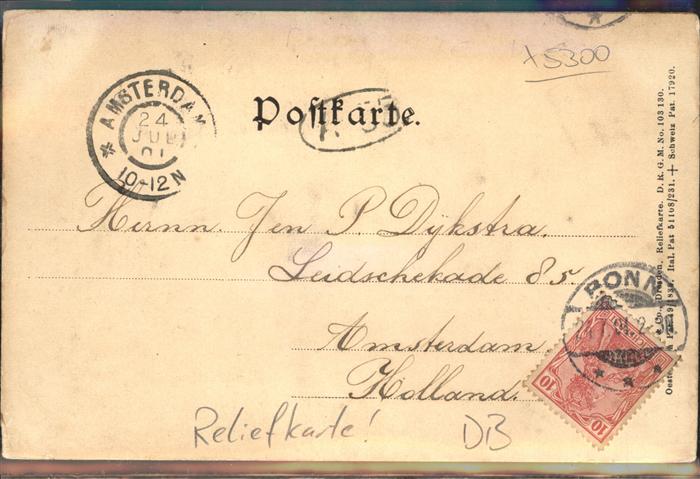 x5300
AMSTERDAM
24
JUL
01
10-12N
Postkarte.
Herrn. Jen P. Dijkstra.
Leidschekade 85.
Amsterdam
Holland.
BONN
10 10
Reliefkarte!
DB
Dresden, Reliefkarte. D. R. G. M. No. 103130.
Ital. Pat 51108/231. + Schweiz Pat. 17920.